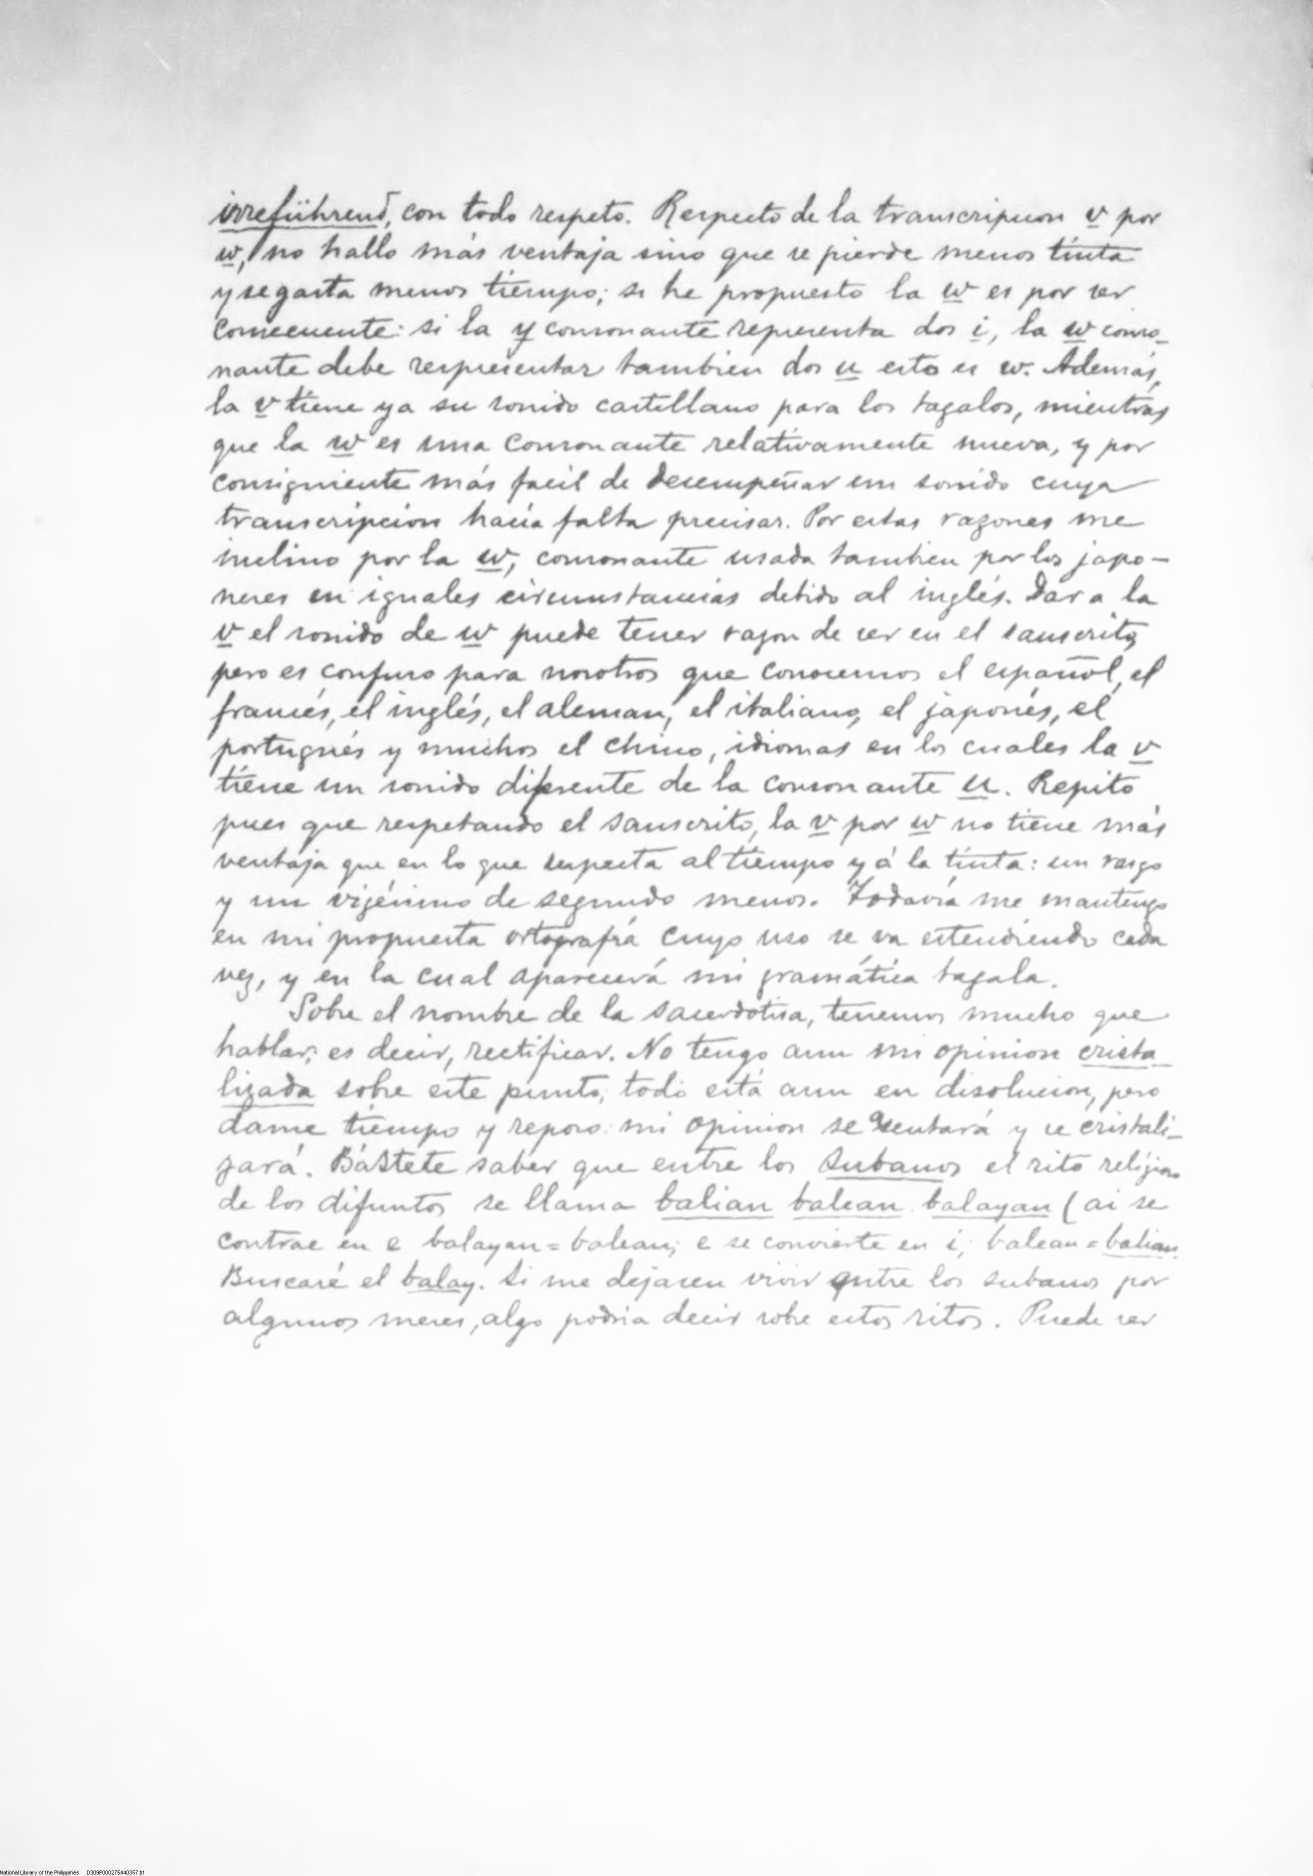 irreführend, con todo respeto. Respecto de la transcripcion v por
w, no hallo más ventaja sino que se pierde menos tinta
y se gasta menos tiempo; si he propuesto la w es por ser
consecuente: si la y consonante representa dos i, la w conso-
nante debe respresentar tambien dos u esto es w. Además,
la v tiene ya su sonido castellano para los tagalos, mientras
que la w es una consonante relativamente nueva, y por
consigniente más facil de desempeñar un sonido cuya
transcripcion hacía falta precisar. Por estas razones me
inclino por la w, consonante usada tambien por los japo-
neses en iguales circumstancias debido al inglés. Dar a la
v el sonido de w puede tener razon de ser en el sanscrito,
pero es confuso para nosotros que conocemos el español, el
francés, el inglés, el aleman, el italiano, el japonés, el
portugués y muchos el chino, idiomas en los cuales la v
tiene un sonido diferente de la consonante u. Repito
pues que respetando el sanscrito, la v por w no tiene más
ventaja que en lo que respecta al tiempo y á la tinta: un rasgo
y un vigésimo de segundo menos. Todavía me mantengo
en mi propuesta ortografía cuyo uso se va estendiendo cada
vez, y en la cual aparecerá mi gramática tagala.
Sobre el nombre de la sacerdotisa, tenemos mucho que
hablar; es decir, rectificar. No tengo aun mi opinion crista-
lizada sobre este punto; todo está aun en disolucion, pero
dame tiempo y reposo: mi opinion se asentará y se cristali-
zará. Bástete saber que entre los Subanos el rito religioso
de los difuntos se llama balian balean balayan (ai se
contrae en e balayan = balean; e se convierte en i; balean = balian
Buscaré el balay. Si me dejasen vivir entre los subanos por
algunos meses, algo podría decir sobre estos ritos. Puede ser
National Library of the Philippines D309P000275440357.tif